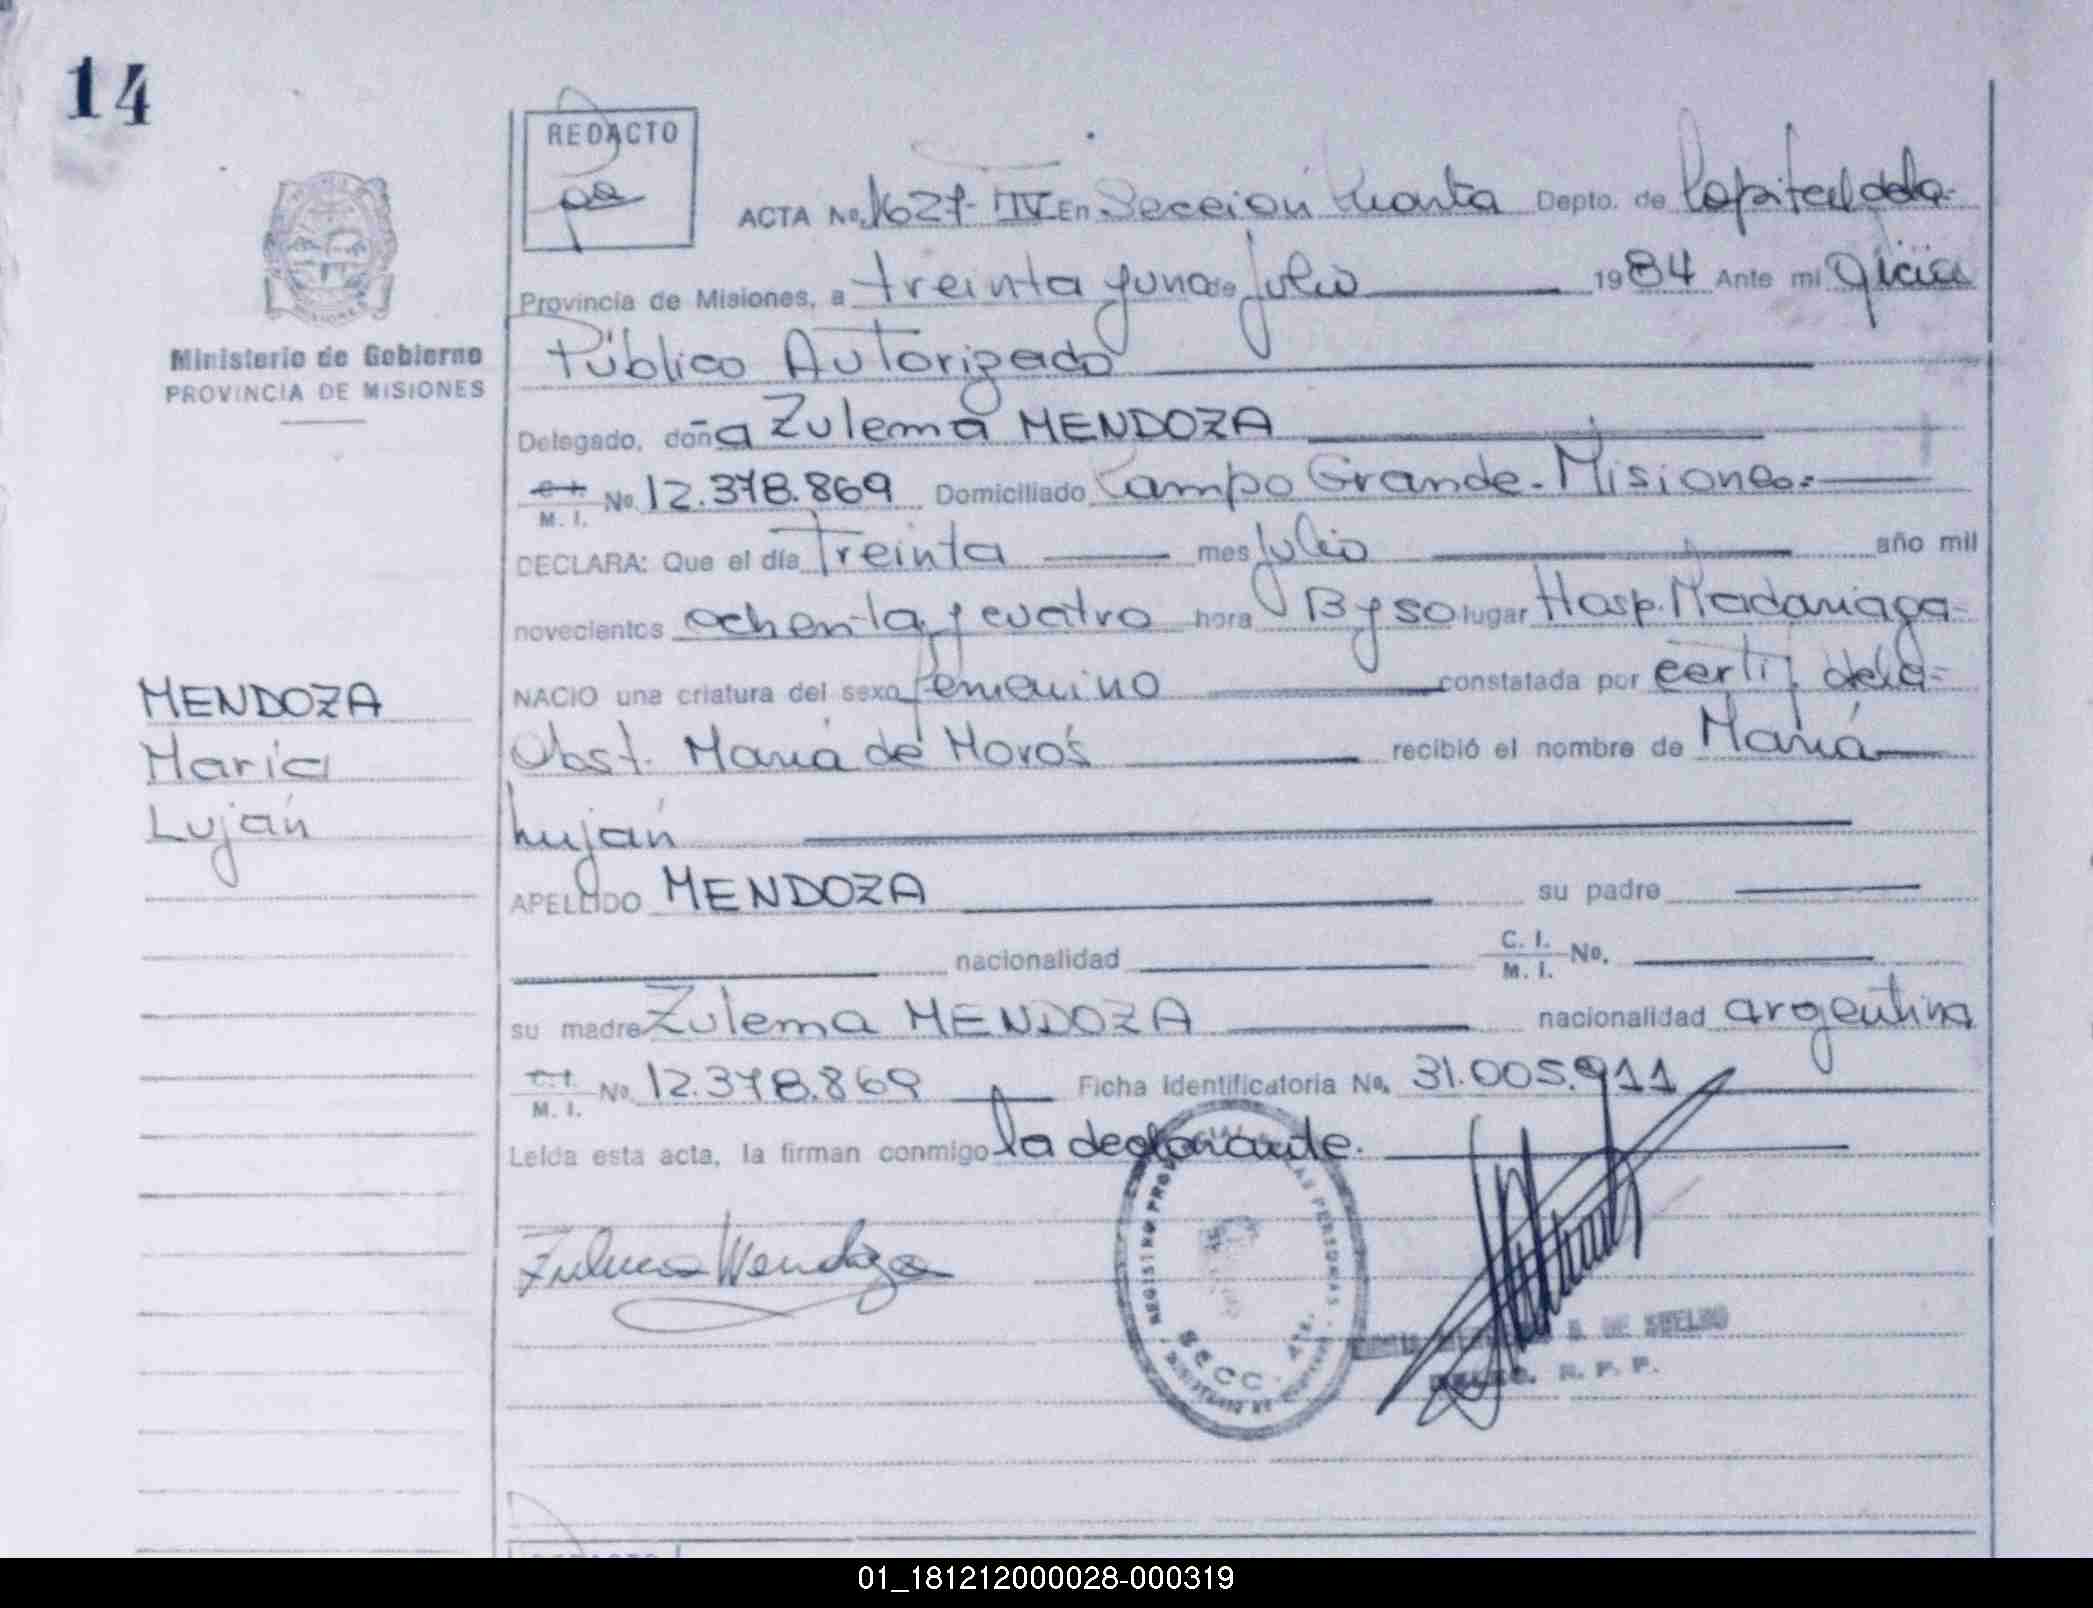 14
REDACTO
ACTA No. 1627- IV En Sección Cuarta Depto. de Capital de la-
Provincia de Misiones, a treinta y uno de Julio 1984 Ante mi Oficial
Público Autorizado
Ministerio de Gobierno
PROVINCIA DE MISIONES
Delegado, doña Zulema MENDOZA
C. I. M. I. No. 12.378.869 Domiciliado Campo Grande-Misiones-
DECLARA: Que el día Treinta mes Julio año mil
novecientos ochenta y cuatro hora 13 y 50 lugar Hosp. Madariaga-
NACIO una criatura del sexo femenino constatada por certif. de la-
Obst. María de Moros recibió el nombre de María
Luján
MENDOZA
María
Luján
APELLIDO MENDOZA su padre
nacionalidad C. I. M. I. No.
su madre Zulema MENDOZA nacionalidad argentina
C. I. M. I. No. 12.378.869 Ficha Identificatoria No. 31.005.911
Leída esta acta, la firman conmigo la declarante.
Zulema Mendoza
REGISTRO PROVINCIAL DE LAS PERSONAS
SECC. 4ta.
DE
R. P. P.
01_181212000028-000319